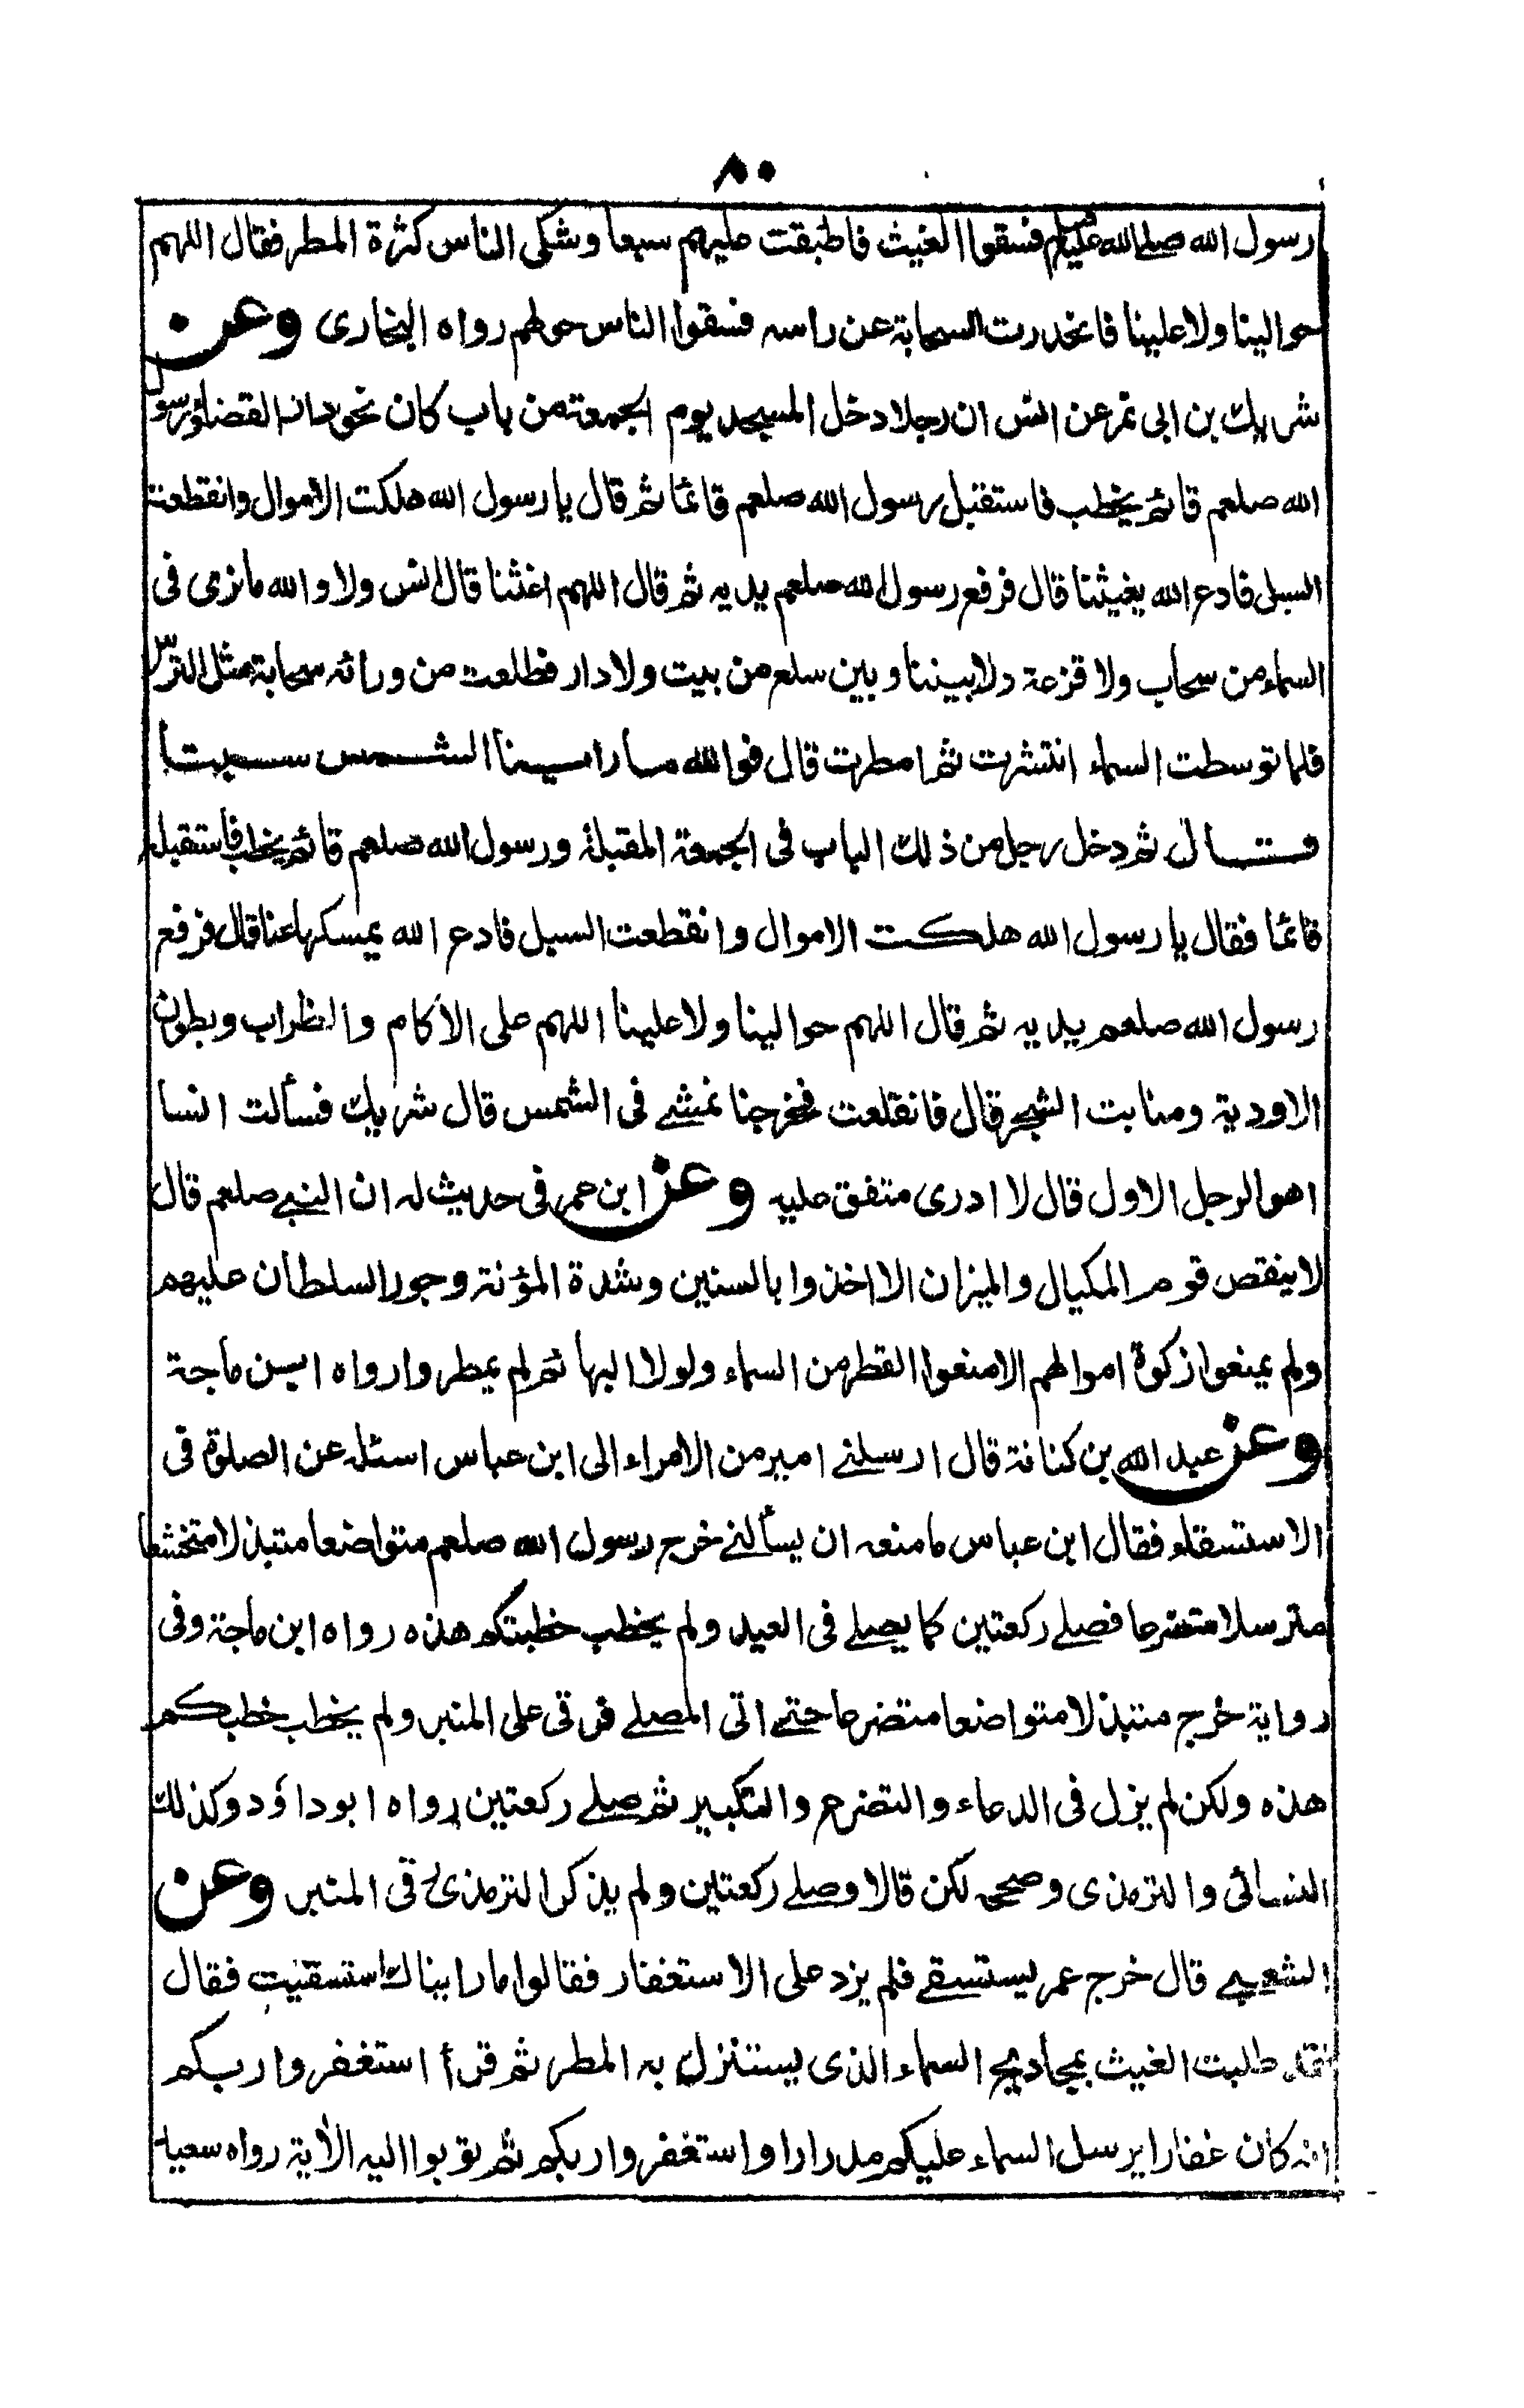 ٨٠
رسول الله صلى الله عليه وسلم فسقوا الغيث فاطبقت عليهم سبعا وشكى الناس كثرة المطر فقال اللهم
حوالينا ولا علينا فانخدرت السحابة عن راسه فسقوا الناس حولهم رواه البخارى وعن
شريك بن ابى نمر عن انس ان رجلا دخل المسجد يوم الجمعة من باب كان نحو دار القضاء ورسول
الله صلعم قائم يخطب فاستقبل رسول الله صلعم قائما ثم قال يا رسول الله هلكت الاموال وانقطعت
السبل فادع الله يغيثنا قال فرفع رسول الله صلعم يديه ثم قال اللهم اغثنا قال انس ولا والله ما نرى فى
السماء من سحاب ولا قزعة ولا بيننا وبين سلع من بيت ولا دار فطلعت من ورائه سحابة مثل الترس
فلما توسطت السماء انتشرت ثم امطرت قال فوالله ما راينا الشمس سبتا
قال ثم دخل رجل من ذلك الباب فى الجمعة المقبلة ورسول الله صلعم قائم يخطب فاستقبله
قائما فقال يا رسول الله هلكت الاموال وانقطعت السبل فادع الله يمسكها عنا قال فرفع
رسول الله صلعم يديه ثم قال اللهم حوالينا ولا علينا اللهم على الاكام والظراب وبطون
الاودية ومنابت الشجر قال فانقلعت فخرجنا نمشے فى الشمس قال شريك فسألت انسا
اهو الرجل الاول قال لا ادرى متفق عليه وعن ابن عمر فى حديث له ان النبے صلعم قال
لا ينقص قوم المكيال والميزان الا اخذوا بالسنين وشدة المؤنة وجور السلطان عليهم
ولم يمنعوا زكوة اموالهم الا منعوا القطر من السماء ولولا البهائم لم يمطروا رواه ابن ماجة
وعن عبد الله بن كنانة قال ارسلنے امير من الامراء الى ابن عباس اسئله عن الصلوة فى
الاستسقاء فقال ابن عباس ما منعه ان يسألنے خرج رسول الله صلعم متواضعا متبذلا متخشعا
مترسلا متضرعا فصلے ركعتين كما يصلے فى العيد ولم يخطب خطبتكم هذه رواه ابن ماجة وفى
رواية خرج متبذلا متواضعا متضرعا حتے اتى المصلے فرقى على المنبر ولم يخطب خطبكم
هذه ولكن لم يزل فى الدعاء والتضرع والتكبير ثم صلے ركعتين رواه ابو داؤد وكذلك
النسائى والترمذى وصححه لكن قالا وصلے ركعتين ولم يذكر الترمذى رقى المنبر وعن
الشعبے قال خرج عمر يستسقے فلم يزد على الاستغفار فقالوا ما رايناك استسقيت فقال
لقد طلبت الغيث بمجاديح السماء الذى يستنزل به المطر ثم قرأ استغفروا ربكم
انه كان غفارا يرسل السماء عليكم مدرارا واستغفروا ربكم ثم توبوا اليه الأية رواه سعيد